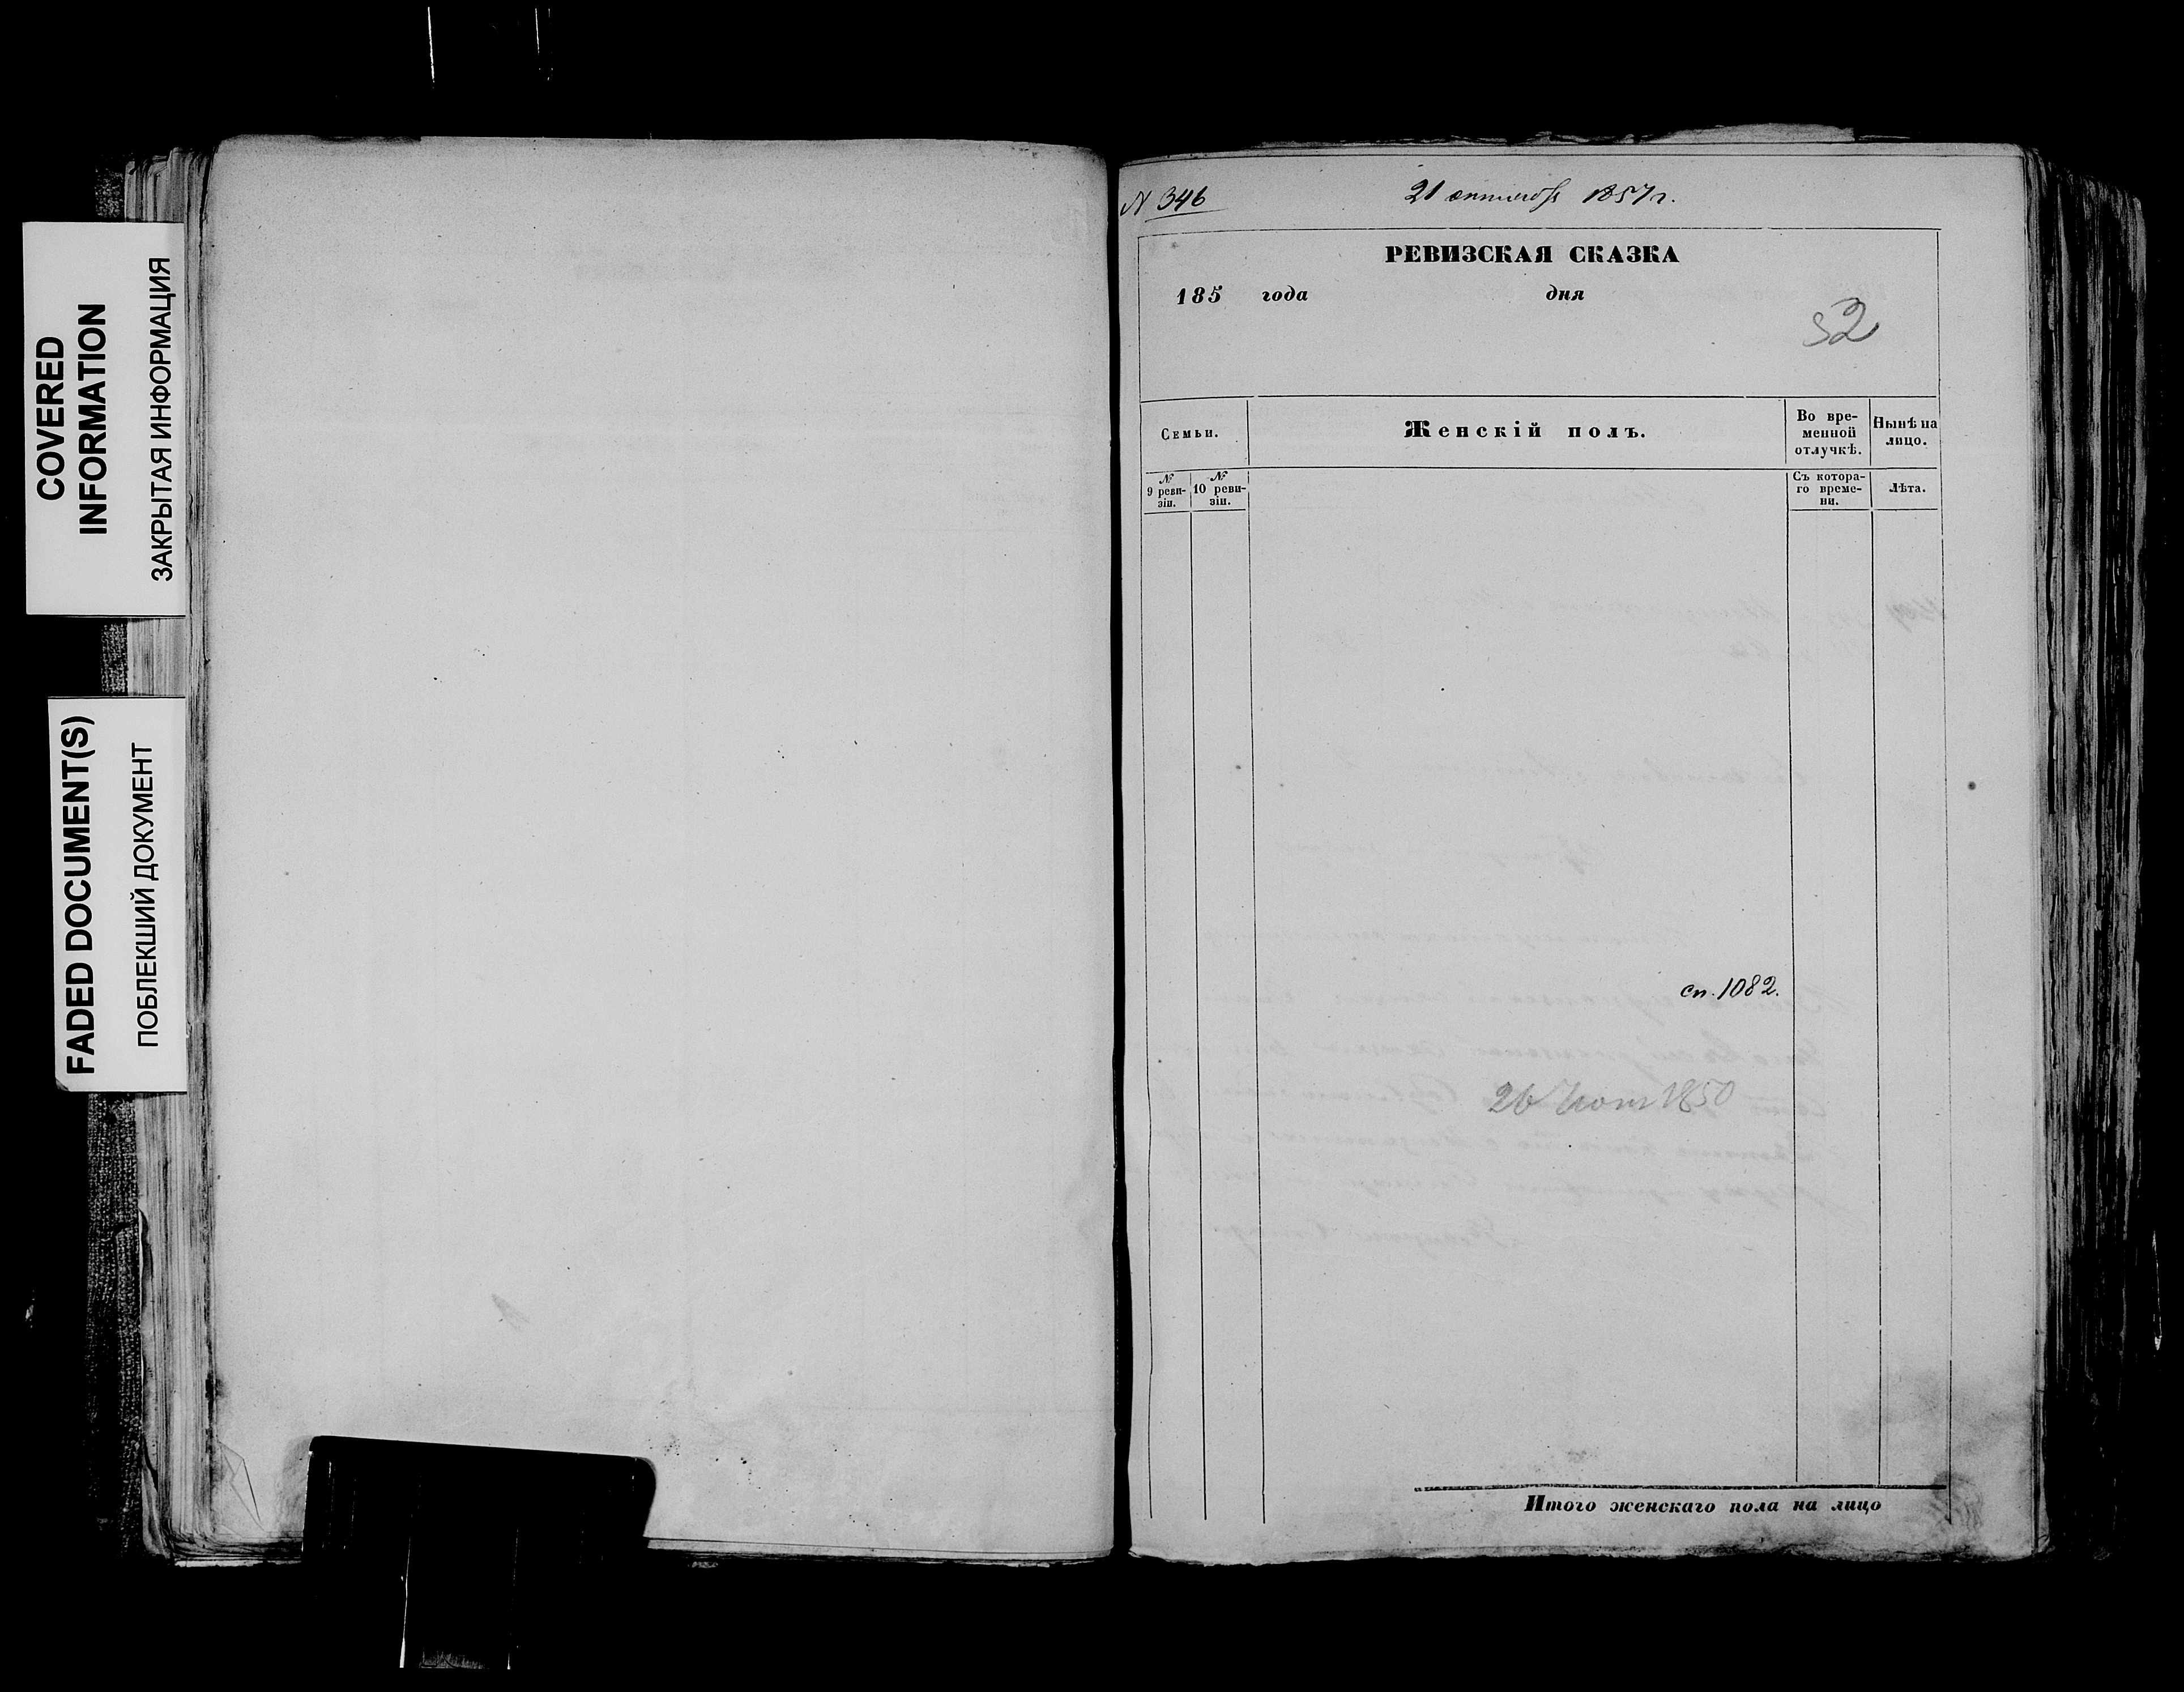 COVERED
INFORMATION
ЗАКРЫТАЯ ИНФОРМАЦИЯ
FADED DOCUMENT(S)
ПОБЛЕКШИЙ ДОКУМЕНТ
N 346
21 октября 1857 г.
РЕВИЗСКАЯ СКАЗКА
185 года дня
52
Семьи.
Женскій полъ.
Во вре-
менной
отлучкѣ.
Нынѣ на
лицо.
№
9 реви-
зіи.
№
10 реви-
зіи.
Съ котора-
го време-
ни.
Лѣта.
сп. 1082.
26 1850
Итого женскаго пола на лицо